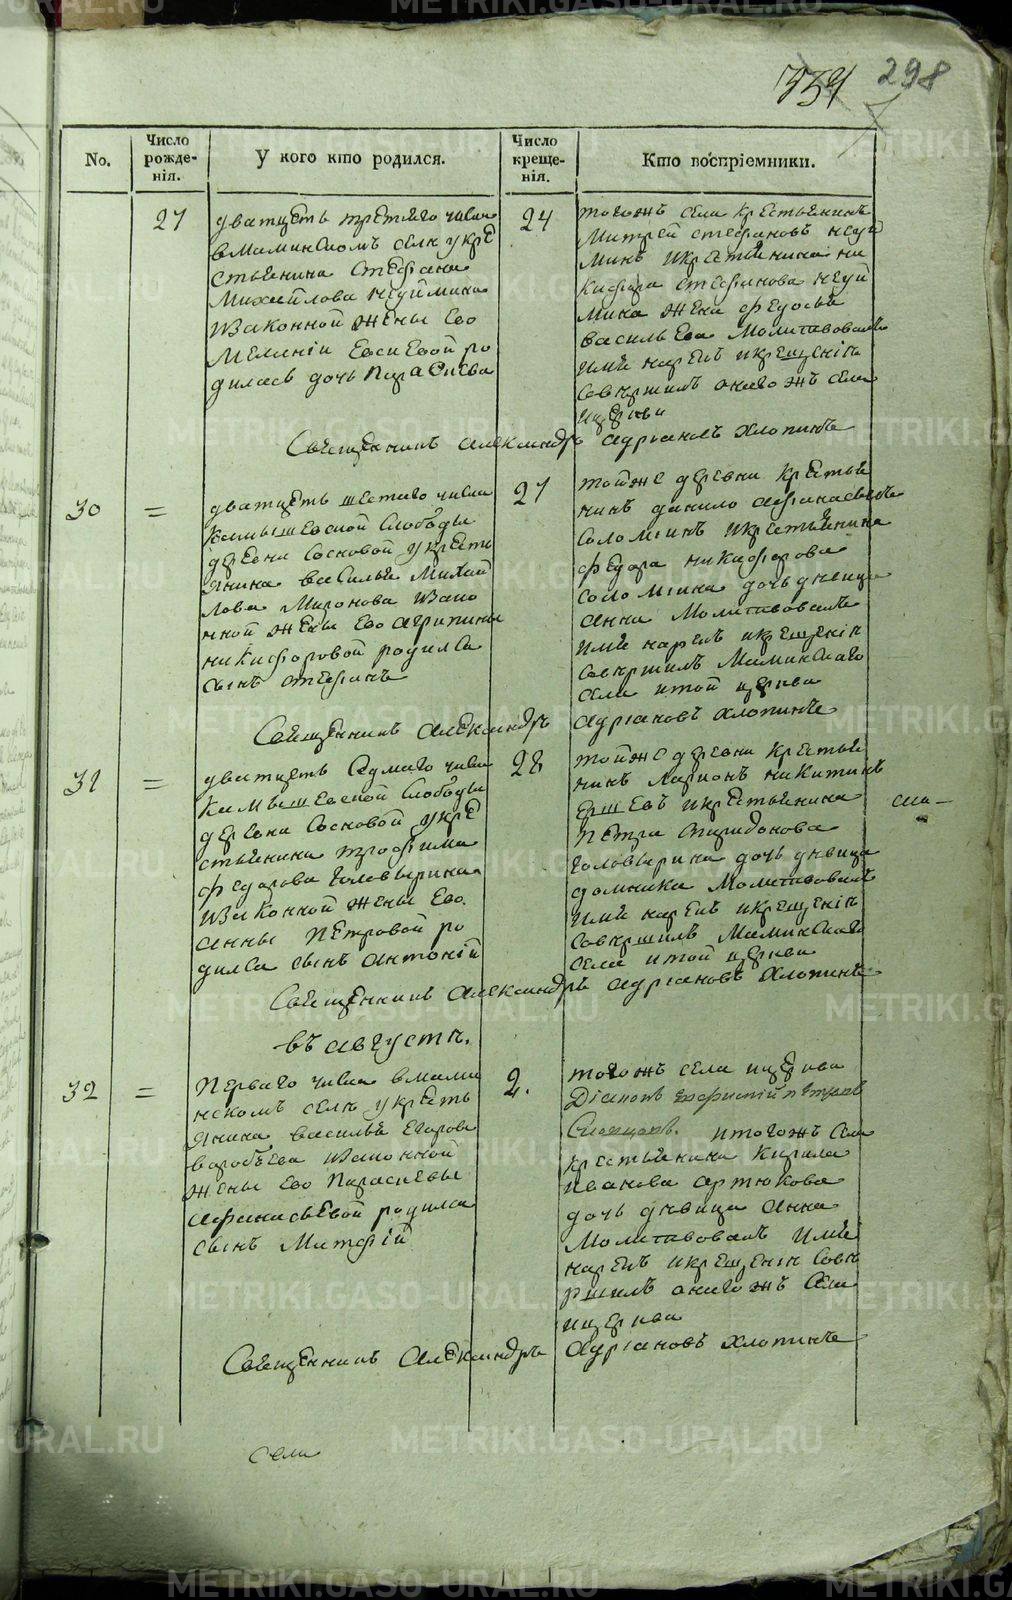 334
298
No.
Число рожденія.
У кого кто родился.
Число крещенія.
Кто воспріемники.
27
дватцеть третьяго числа
вмаминскомъ селѣ укре
стьянина Стефана
Михайлова
изаконной жены Ево
Меланіи Евсиевой ро
дилась дочь Параскева
24
тогожъ села крестьянинъ
Митрей стефановъ
минъ икрестьянина ни
кифора стефанова
мина жена федосья
васильева Молитвовалъ
имя нарекъ икрещеніе
Совершилъ онаго жъ села
церкви
Священникъ Александръ Адріановъ Хлопинъ
30
=
дватцеть шестаго числа
Камышевской Слободы
деревни Сосновой укресть
янина василья Михай
лова Миронова изако
нной жены Ево агрипины
никифоровой родился
сынъ стефанъ
27
тойже деревни крестья
нинъ данило афанасьевъ
Соломеинъ икрестьянина
федора никифорова
соломеина дочь девица
анна Молитвовалъ
имя нарекъ икрещеніе
совершилъ Маминскаго
села итой церкви
Священникъ Александръ Адріановъ Хлопинъ
31
=
дватцеть Седмаго числа
Камышевской Слободы
деревни Сосновой укре
стьянина трофима
федорова Головырина
изаконной жены Ево
анны Петровой ро
дилса сынъ антоній
28
тойже деревни крестья
нинъ Ларионъ никитинъ
Ершевъ икрестьянина
петра спиридонова
головырина дочь девица
домника Молитвовалъ
имя нарекъ икрещеніе
совершилъ Маминскаго
села итой церкви
Священникъ Александръ Адріановъ Хлопинъ
въ августѣ.
32
=
Перваго числа вмами
нскомъ селѣ укресть
янина василья Егорова
воробьева изаконной
жены Ево Параскевы
афанасьевой родился
сынъ Матфій
2.
тогожъ села церкви
Діаконъ петровъ
Словцовъ. итогожъ села
крестьянина Кирила
иванова артюкова
дочь девица анна
Молитвовалъ имя
нарекъ икрещеніе Сове
ршилъ онаго жъ Села
церкви
Священникъ Александръ Адріановъ Хлопинъ
села
METRIKI.GASO-URAL.RU